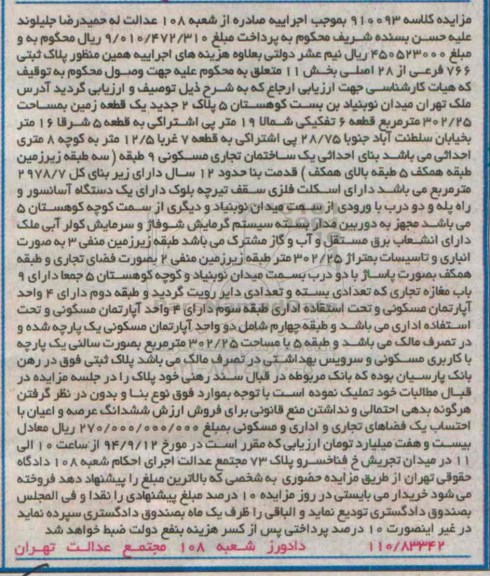 مزایده کلاسه 910093 بموجب اجراییه صادره از شعبه 108 عدالت له حمیدرضا جلیلوند
علیه حسن بسنده شریف محکوم به پرداخت مبلغ 9/010/472/310 ریال محکوم به و
مبلغ 450523000 ریال نیم عشر دولتی بعلاوه هزینه های اجراییه همین منظور پلاک ثبتی
766 فرعی از 28 اصلی بخش 11 متعلق به محکوم علیه جهت وصول محکوم به توقیف
که هیات کارشناسی جهت ارزیابی ارجاع که به شرح ذیل توصیف و ارزیابی گردید آدرس
ملک تهران میدان نوبنیاد بن بست کوهستان 5 پلاک 2 جدید یک قطعه زمین بمساحت
302/25 مترمربع قطعه 6 تفکیکی شمالا 19 متر پی اشتراکی به قطعه 5 شرقا 16 متر
بخیابان سلطنت آباد جنوبا 28/75 پی اشتراکی به قطعه 7 غربا 12/5 متر به کوچه 8 متری
احداثی می باشد بنای احداثی یک ساختمان تجاری مسکونی 9 طبقه (سه طبقه زیرزمین
طبقه همکف 5 طبقه بالای همکف) قدمت بنا حدود 12 سال دارای زیر بنای کل 2978/7
مترمربع می باشد دارای اسکلت فلزی سقف تیرچه بلوک دارای یک دستگاه آسانسور و
راه پله و دو درب با ورودی از سمت میدان نوبنیاد و دیگری از سمت کوچه کوهستان 5
می باشد مجهز به دوربین مدار بسته سیستم گرمایش شوفاژ و سرمایش کولر آبی ملک
دارای انشعاب برق مستقل و آب و گاز مشترک می باشد طبقه زیرزمین منفی 3 به صورت
انباری و تاسیسات بمتراژ 302/25 متر طبقه زیرزمین منفی 2 بصورت فضای تجاری و طبقه
همکف بصورت پاساژ با دو درب بسمت میدان نوبنیاد و کوچه کوهستان 5 جمعا دارای 9
باب مغازه تجاری که تعدادی بسته و تعدادی دایر رویت گردید و طبقه دوم دارای 4 واحد
آپارتمان مسکونی و تحت استفاده اداری طبقه سوم دارای 4 واحد آپارتمان مسکونی و تحت
استفاده اداری می باشد و طبقه چهارم شامل دو واحد آپارتمان مسکونی یک پارچه شده و
در تصرف مالک می باشد و طبقه 5 با مساحت 302/25 مترمربع بصورت سالنی یک پارچه
با کاربری مسکونی و سرویس بهداشتی در تصرف مالک می باشد پلاک ثبتی فوق در رهن
بانک پارسیان بوده که بانک مربوطه در قبال سند رهنی خود پلاک را در جلسه مزایده در
قبال مطالبات خود تملیک نموده است با توجه بموارد فوق نوع بنا و بدون در نظر گرفتن
هرگونه بدهی احتمالی و نداشتن منع قانونی برای فروش ارزش ششدانگ عرصه و اعیان با
احتساب یک فضاهای تجاری و اداری و مسکونی بمبلغ 270/000/000/000 ریال معادل
بیست و هفت میلیارد تومان ارزیابی که مقرر است در مورخ 94/9/12 از ساعت 10 الی
11 در میدان تجریش خ فناخسرو پلاک 73 مجتمع عدالت اجرای احکام شعبه 108 دادگاه
حقوقی تهران از طریق مزایده حضوری به شخصی که بالاترین مبلغ را پیشنهاد دهد فروخته
می شود خریدار می بایستی در روز مزایده 10 درصد مبلغ پیشنهادی را نقدا و فی المجلس
بصندوق دادگستری تودیع نماید و الباقی را ظرف یک ماه بصندوق دادگستری سپرده نماید
در غیر اینصورت 10 درصد پرداختی پس از کسر هزینه بنفع دولت ضبط خواهد شد
110/83342 دادورز شعبه 108 مجتمع عدالت تهران